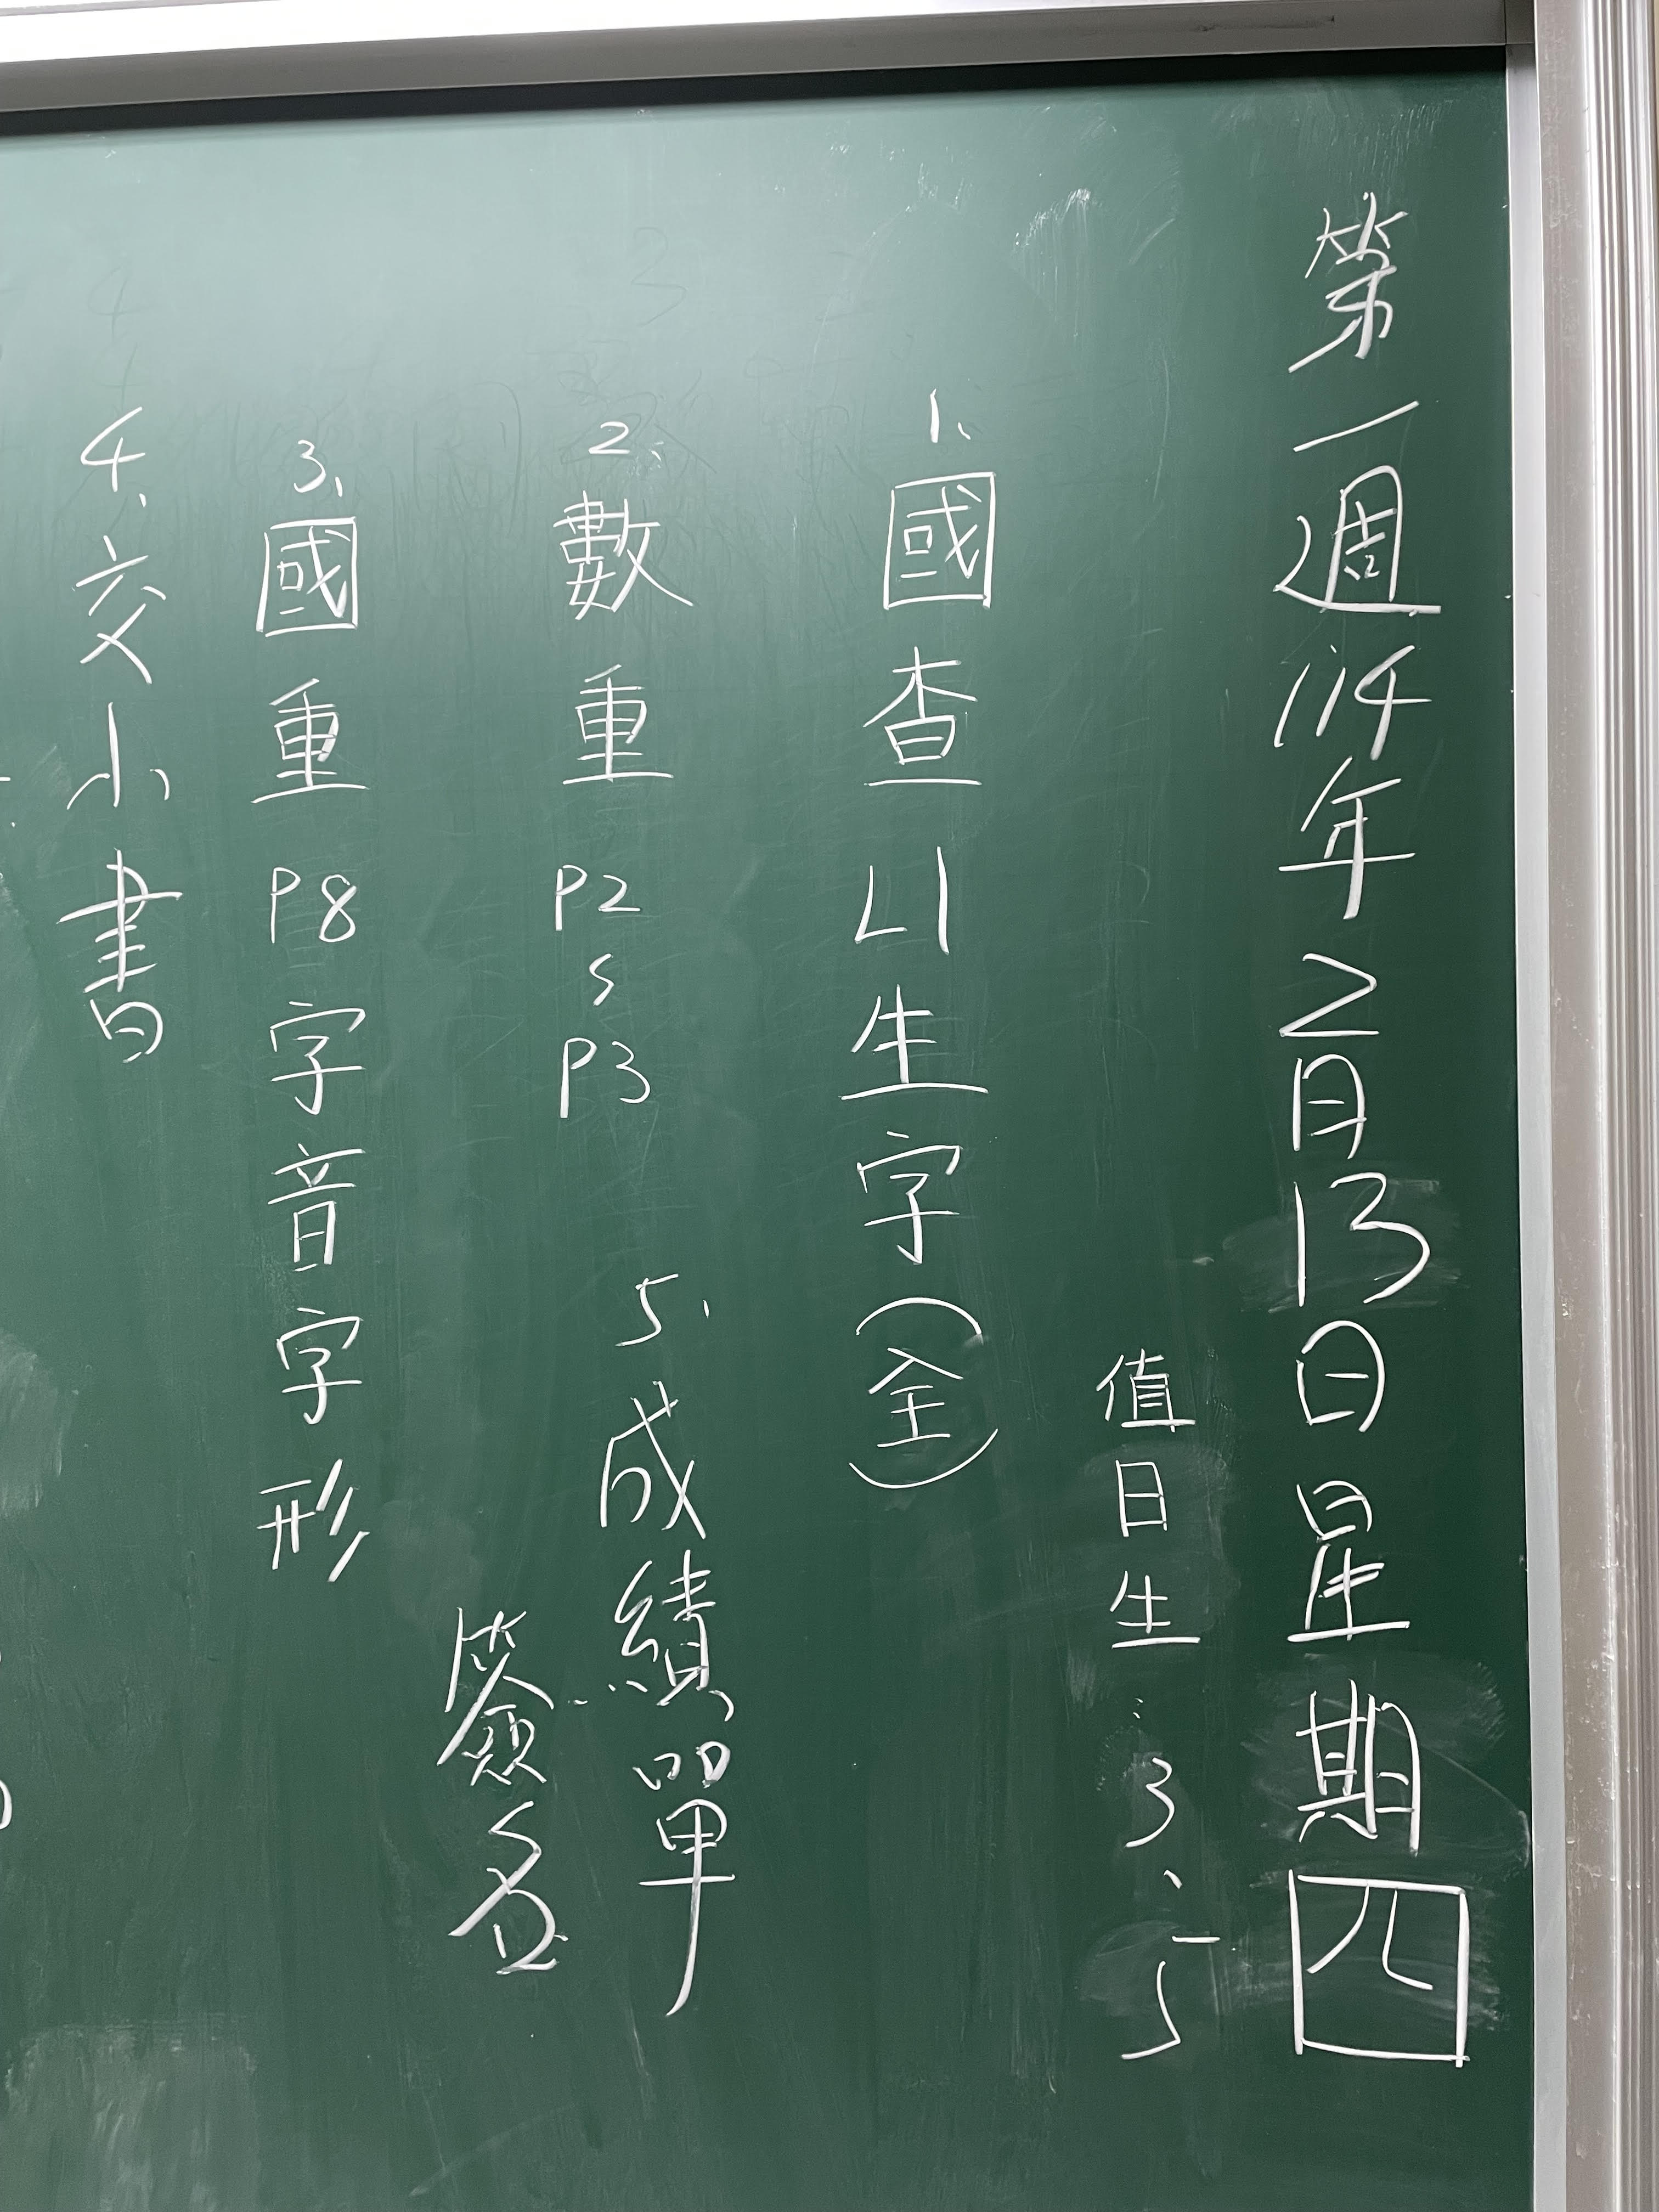 第一週114年2月13日星期四
值日生：3、5
1、國查L1生字（全）
2、數重P2~P3
5、成績單
簽名
3、國重P8字音字形
4、交小書